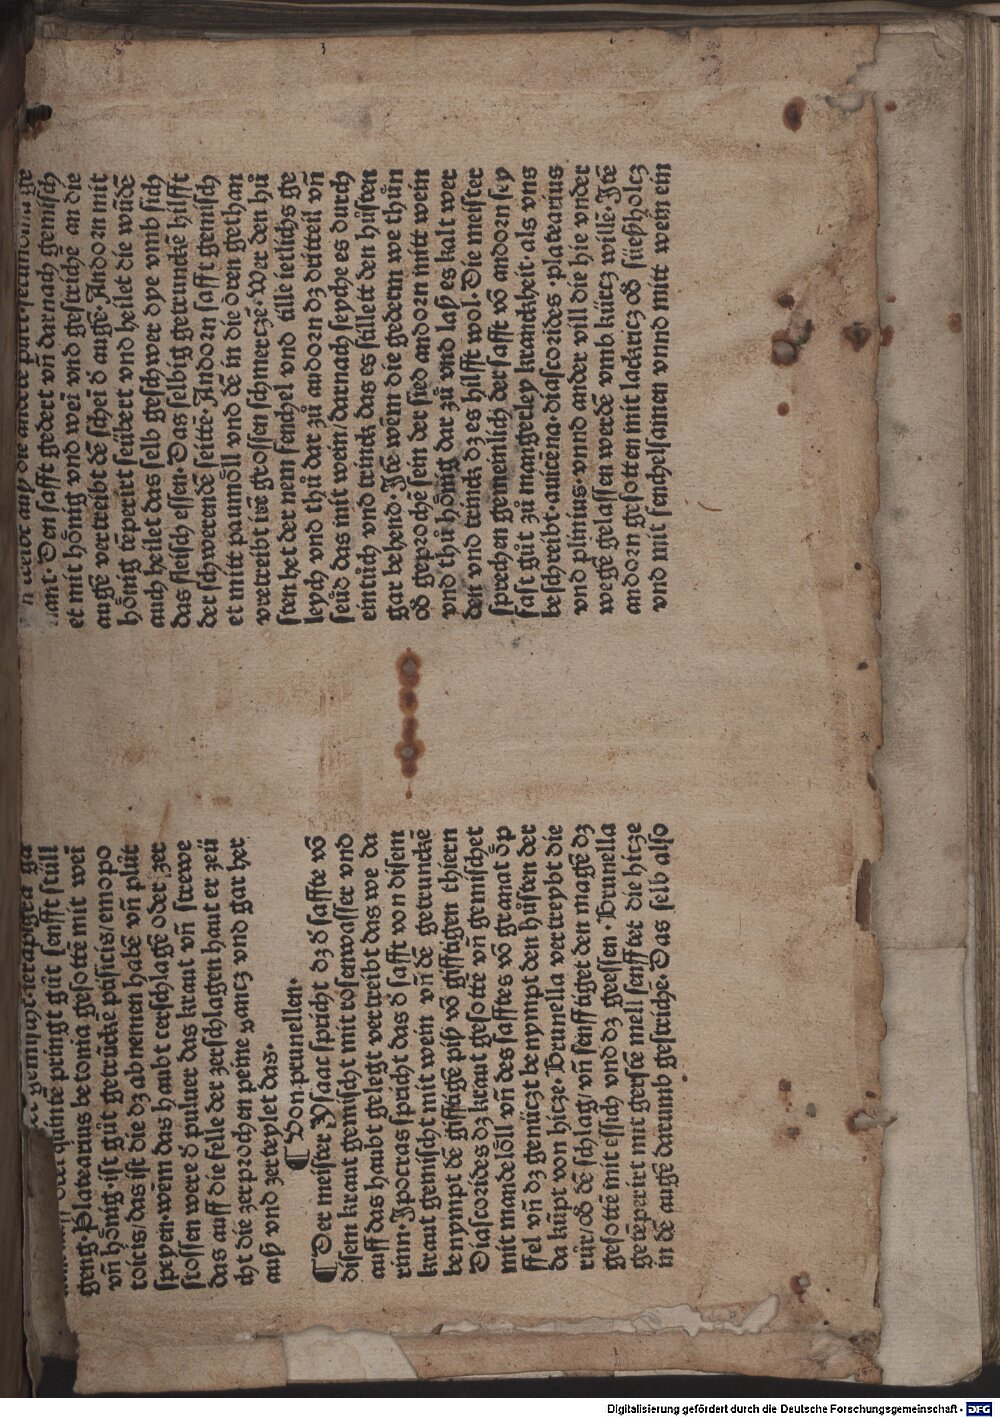 gemischt ierapigra ga
oder quinte pringt gůt senfft stůll
geng. Platearius betonia gesottē mit wei
vñ hönig. ist gůt getrückē ptisicis/emopo
toicis/das ist die dz abnemen habē vñ plůt
speyen. wem das haubt zerschlagē oder zer
stossen were d puluer das kraut vñ strewe
das auff die felle der zerschlagen haut er zeü
cht die zerprochen peine gantz vnd gar her
auß vnd zerteylet das.
¶ Von prunellen.
¶ Der meister Ysaac spricht dz d saffte vō
disem kraut gemischt mit rosenwasser vnd
auff das haubt gelegt vertreibt das we da
rinn. Ipocras spricht das d safft von disem
kraut gemischt mit wein vñ dē getrunckē
benympt dē gifftigē piß vō gifftigen thiern
Diascorides dz kraut gesottē vñ gemischet
mit mandelöll vñ des safftes vō granat öp
ffel vñ dz genüczt benympt den hůsten der
da kůpt von hicze. Brunella vertreybt die
růr/ob dē schlag/vñ senfftiget den magē dz
gesottē mit essich vnd dz geessen. Brunella
getēperirt mit gerstē mell senfftet die hicze
in dē augē darumb gestrichē. Das selb also
auß die andere
nant. Den safft gedert vñ darnach gemisch
et mit hönig vnd wei vnd gestrichē an die
augē vertreibt dē schei d augē. Andorn mit
hönig tēperirt seübert vnd heilet die wūdē
auch heilet das selb geschwer dye vmb sich
das fleisch essen. Das selbig getrunckē hilfft
der schwerendē seittē. Andorn safft gemisch
et mitt paumöll vnd dē in die oren gethan
vertreibt irē grossen schmertzē. Wer den hů
sten het der nem fenchel vnd tille ietlichs ge
leych vnd thů dar zů andorn dz dritteil vñ
seüd das mit wein/darnach seyche es durch
ein tůch vnd trinck das es stillett den hůsten
gar behend. Itē wēm die gederm we thůn
ob geprochē sein der sied andorn mitt wein
vnd thů hönig dar zů vnd laß es kalt wer
den vnd trinck dz es hilfft wol. Die meister
sprechen gemeinlich der safft vō andorn sey
fast gůt zů mangerley kranckheit. als vns
beschreibt. auicēna. diascorides. platearius
vnd plinius. vnnd ander will die hie vnder
wegē gelassen werdē vmb kürcz willē. Itē
andorn gesotten mit lackricz ob süeßholcz
vnd mit fenchelsamen vnnd mitt wein ein
Digitalisierung gefördert durch die Deutsche Forschungsgemeinschaft - DFG